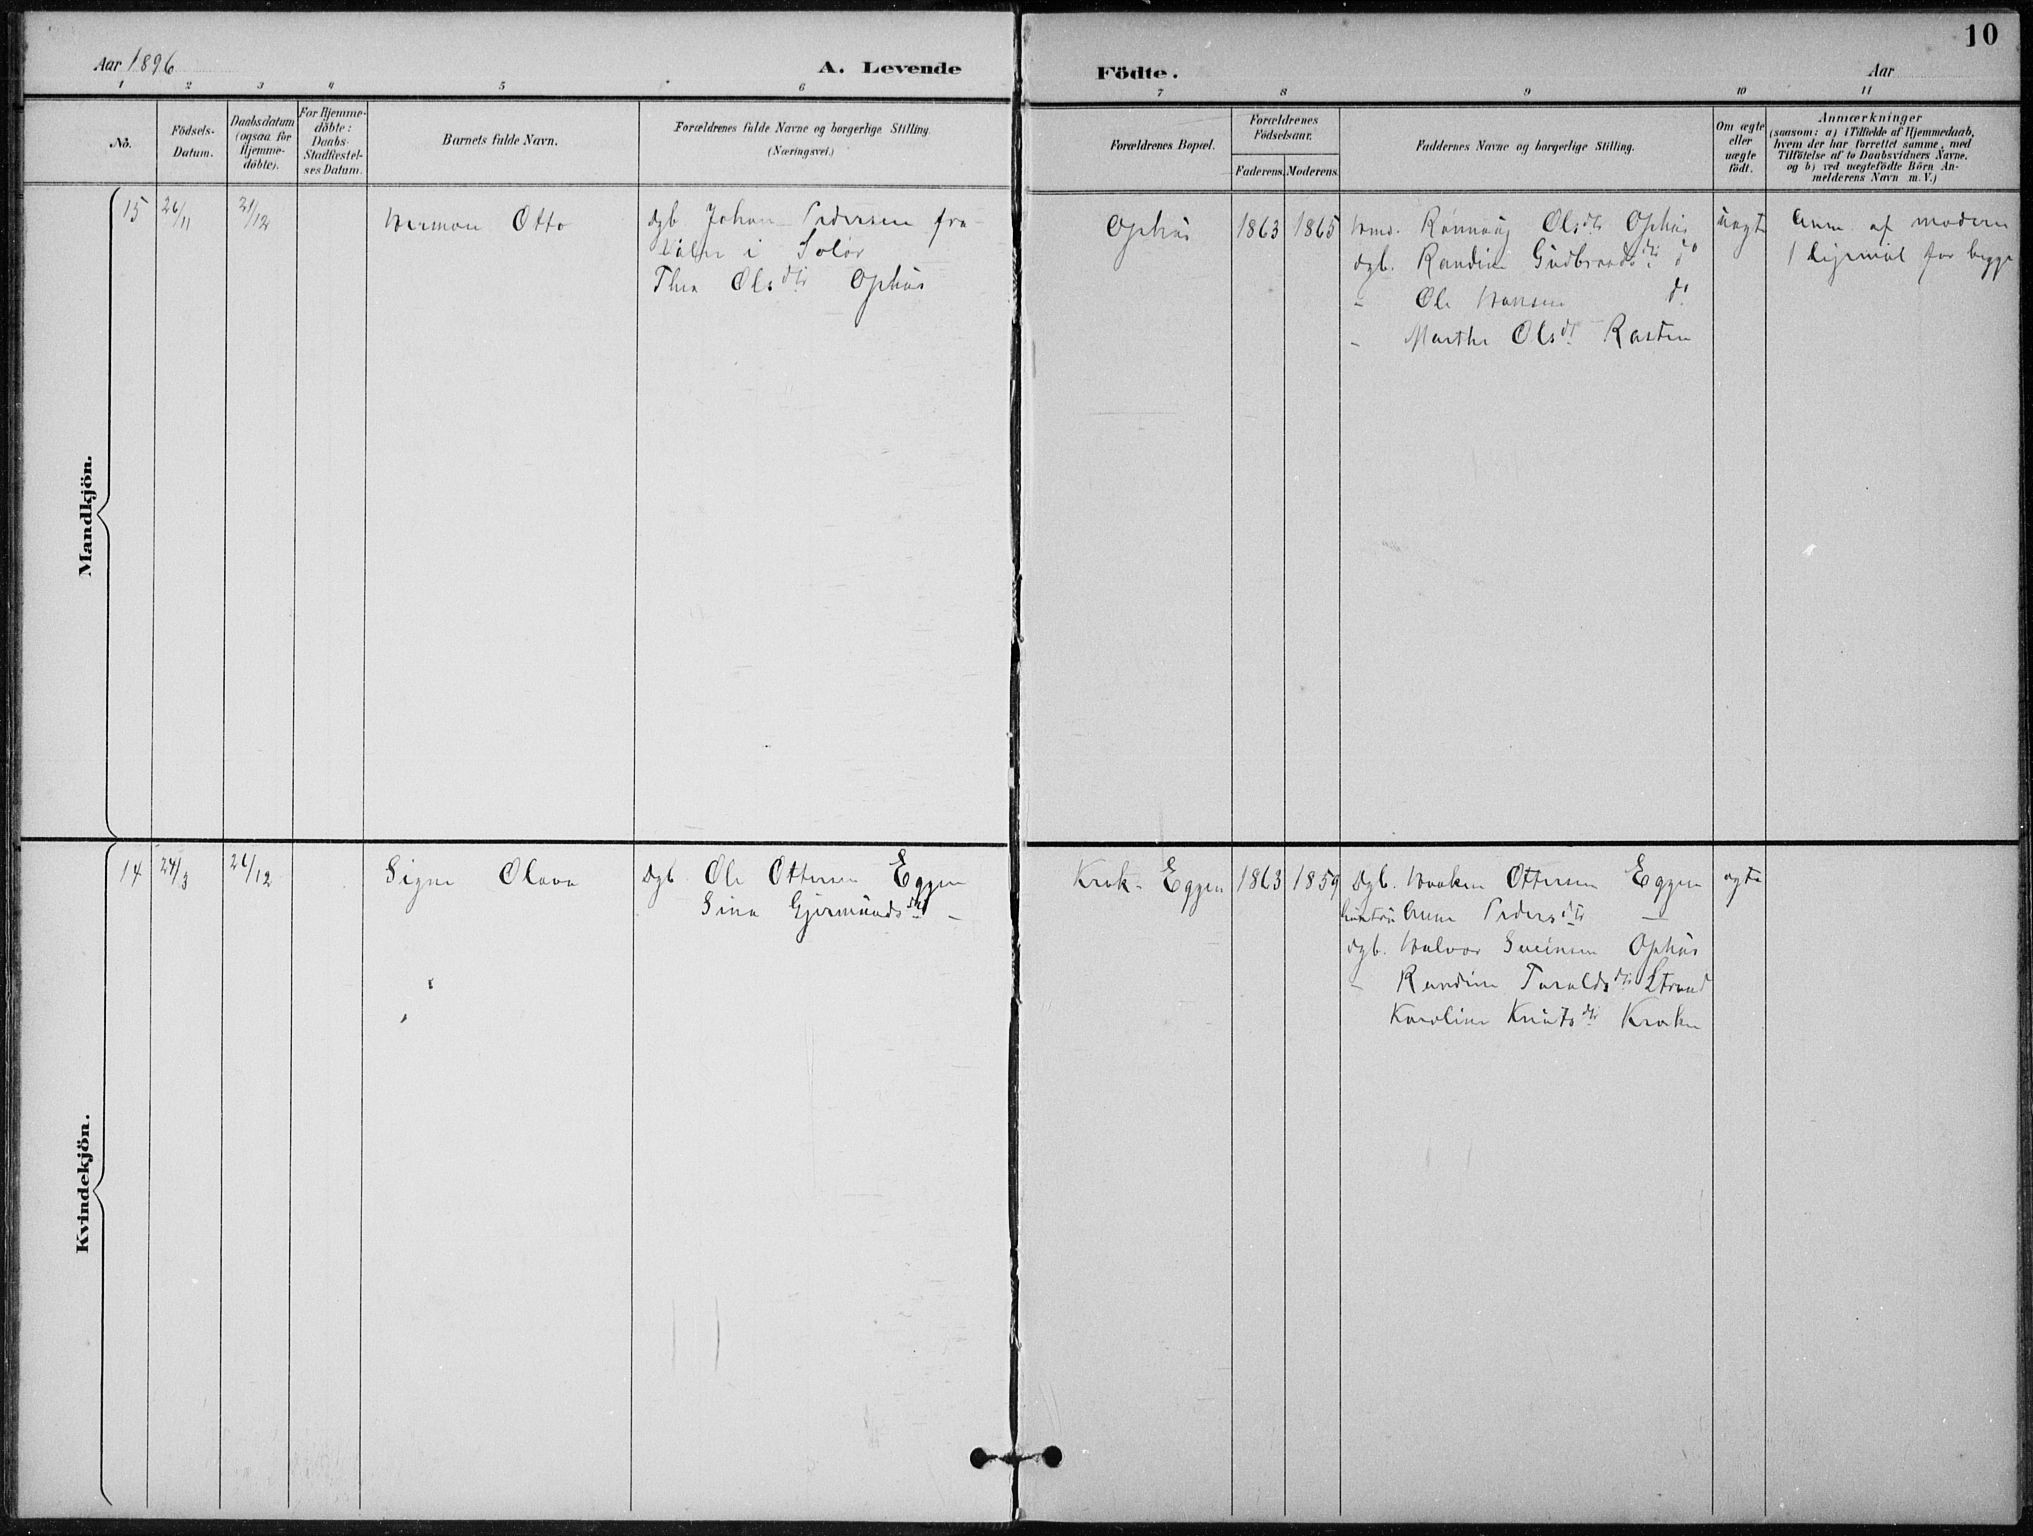 10
Aar 1896
A. Levende
Födte.
Aar
1 2 3 4 5 6 7 8 9 10 11
No.
Födsels-
Datum.
Daabsdatum
(ogsaa for
Hjemme-
döbte).
For Hjemme-
döbte:
Daabs-
Stadfæstel-
ses Datum.
Barnets fulde Navn.
Forældrenes fulde Navne og borgerlige Stilling
(Næringsvei.)
Forældrenes Bopæl.
Forældrenes
Födselsaar.
Faderens. Moderens.
Faddernes Navne og borgerlige Stilling.
Om ægte
eller
uægte
födt.
Anmærkninger
(saasom: a) i Tilfælde af Hjemmedaab,
hvem der har forrettet samme, med
Tilföielse af to Daabsvidners Navne,
og b) ved uægtefödte Börn An-
melderens Navn m. V.)
Mandkjön.
15 26/11 21/12 Herman Otto dgb Johan Pedersen fra
Våler i Solør
Thea Olsdtr Ophus
Ophus 1863 1865 Hms. Rønnaug Olsdtr Ophus uægte Anm. af moderen
dgb. Randine Gudbrandsdtr do 1 Leiermål for begge
- Ole Hansen do
- Marthe Olsdt Rasten
Kvindekjön.
14 24/3 26/12 Signe Olava Dgb. Ole Ottersen Eggen
Sina Gjermundsdtr -
Krok-Eggen 1863 1859 Dgb. Haaken Ottersen Eggen ægte
hustru Anne Pedersdtr -
dgb. Halvor Sveinsen Ophus
- Randine Taraldsdtr Strand
Karoline Knutsdtr Kroken